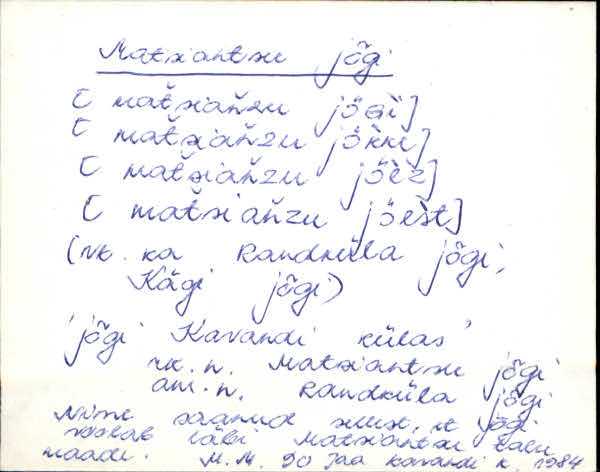 Matsiantsu jõgi
[ mat̆sian̆zu jöGì]
[ mat̆sian̆zu jökki]
[ mat̆sian̆zu jöèz]
[ mat̆sian̆zu jöèst]
(rk. ka Randküla jõgi,
Kägi jõgi)
'jõgi Kavandi külas'
rk.n. Matsiantsu jõgi
am.n. Randküla jõgi
Nime saanud sellest, et jõgi
voolab läbi Matsiantsu talu
maade. M.M. 90 Jaa Kavandi k 1984